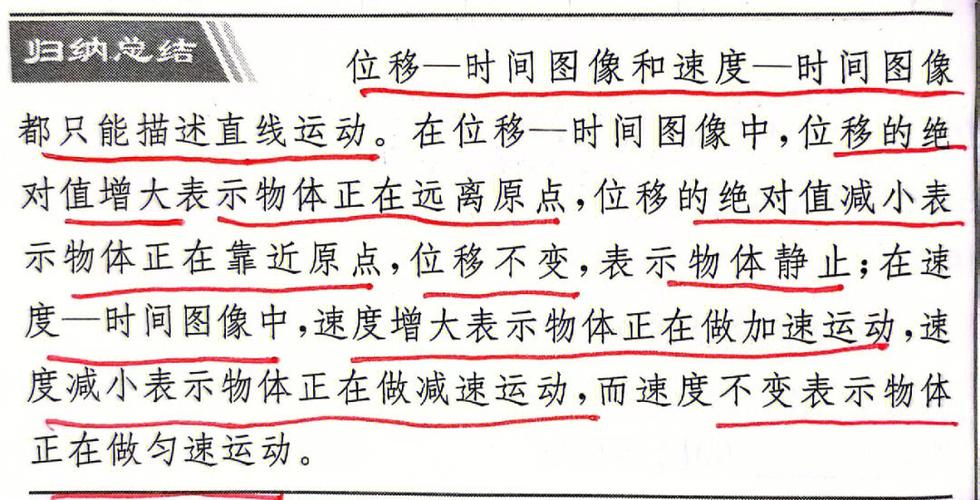 归纳总结
位移—时间图像和速度—时间图像
都只能描述直线运动。在位移—时间图像中,位移的绝
对值增大表示物体正在远离原点,位移的绝对值减小表
示物体正在靠近原点,位移不变,表示物体静止;在速
度—时间图像中,速度增大表示物体正在做加速运动,速
度减小表示物体正在做减速运动,而速度不变表示物体
正在做匀速运动。